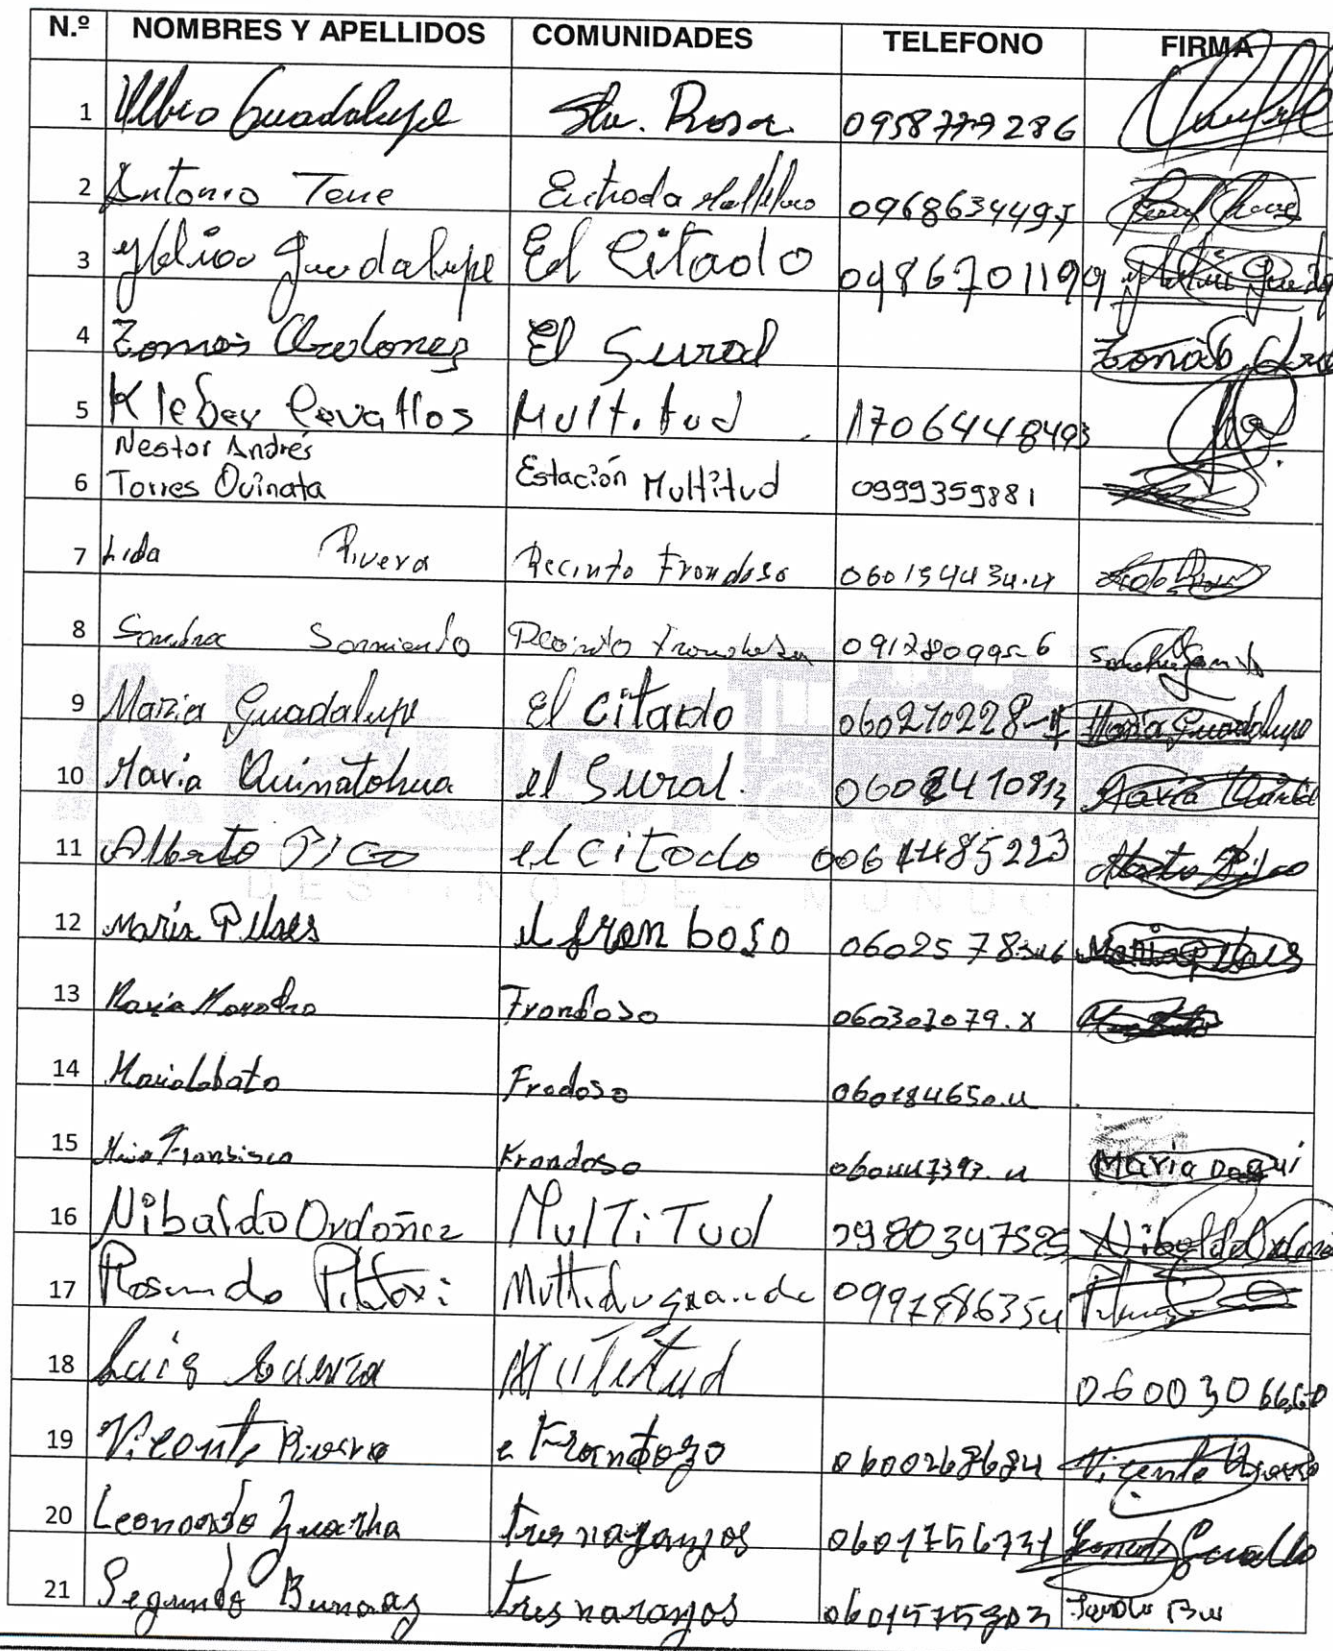 N.º NOMBRES Y APELLIDOS COMUNIDADES TELEFONO FIRMA
1 Ulbio Guadalupe Sta. Rosa. 0958779286
2 Antonio Tene Entrada 0968634495
3 Guadalupe El Citado 0986701199
4 Tomas El Sural
5 Kleber Cevallos Multitud 1706448493
Nestor Andrés
6 Torres Quinata Estación Multitud 0999359881
7 Lida Rivera Recinto Frondoso 060154434-4
8 Sandra Sarmiento Recinto 091280995-6
9 Maria Guadalupe El citado 060270228-7 Maria Guadalupe
10 Maria Quinatohua el Sural. 0602410813 Maria
11 Alberto Pico el citado 0061485223 Alberto
12 Maria Pilaes el fron boso Maria Pilaes
13 Maria Frondoso 060302079.X
14 Maria Lobato Frodoso 060184650.4
15 Fransisca Frondoso Maria
16 Nibaldo Ordoñez MulTiTud 0980347525 Nibaldo
17 Rosendo Pilatoxi 0997986354
18 Luis Guerra Multitud
19 Vicente Rivera e Frondozo 0600268684 Vicente
20 Leonardo tres naranjos 0601756731
21 Segundo tres naranjos 0601575903
DESTINO DEL MUNDO